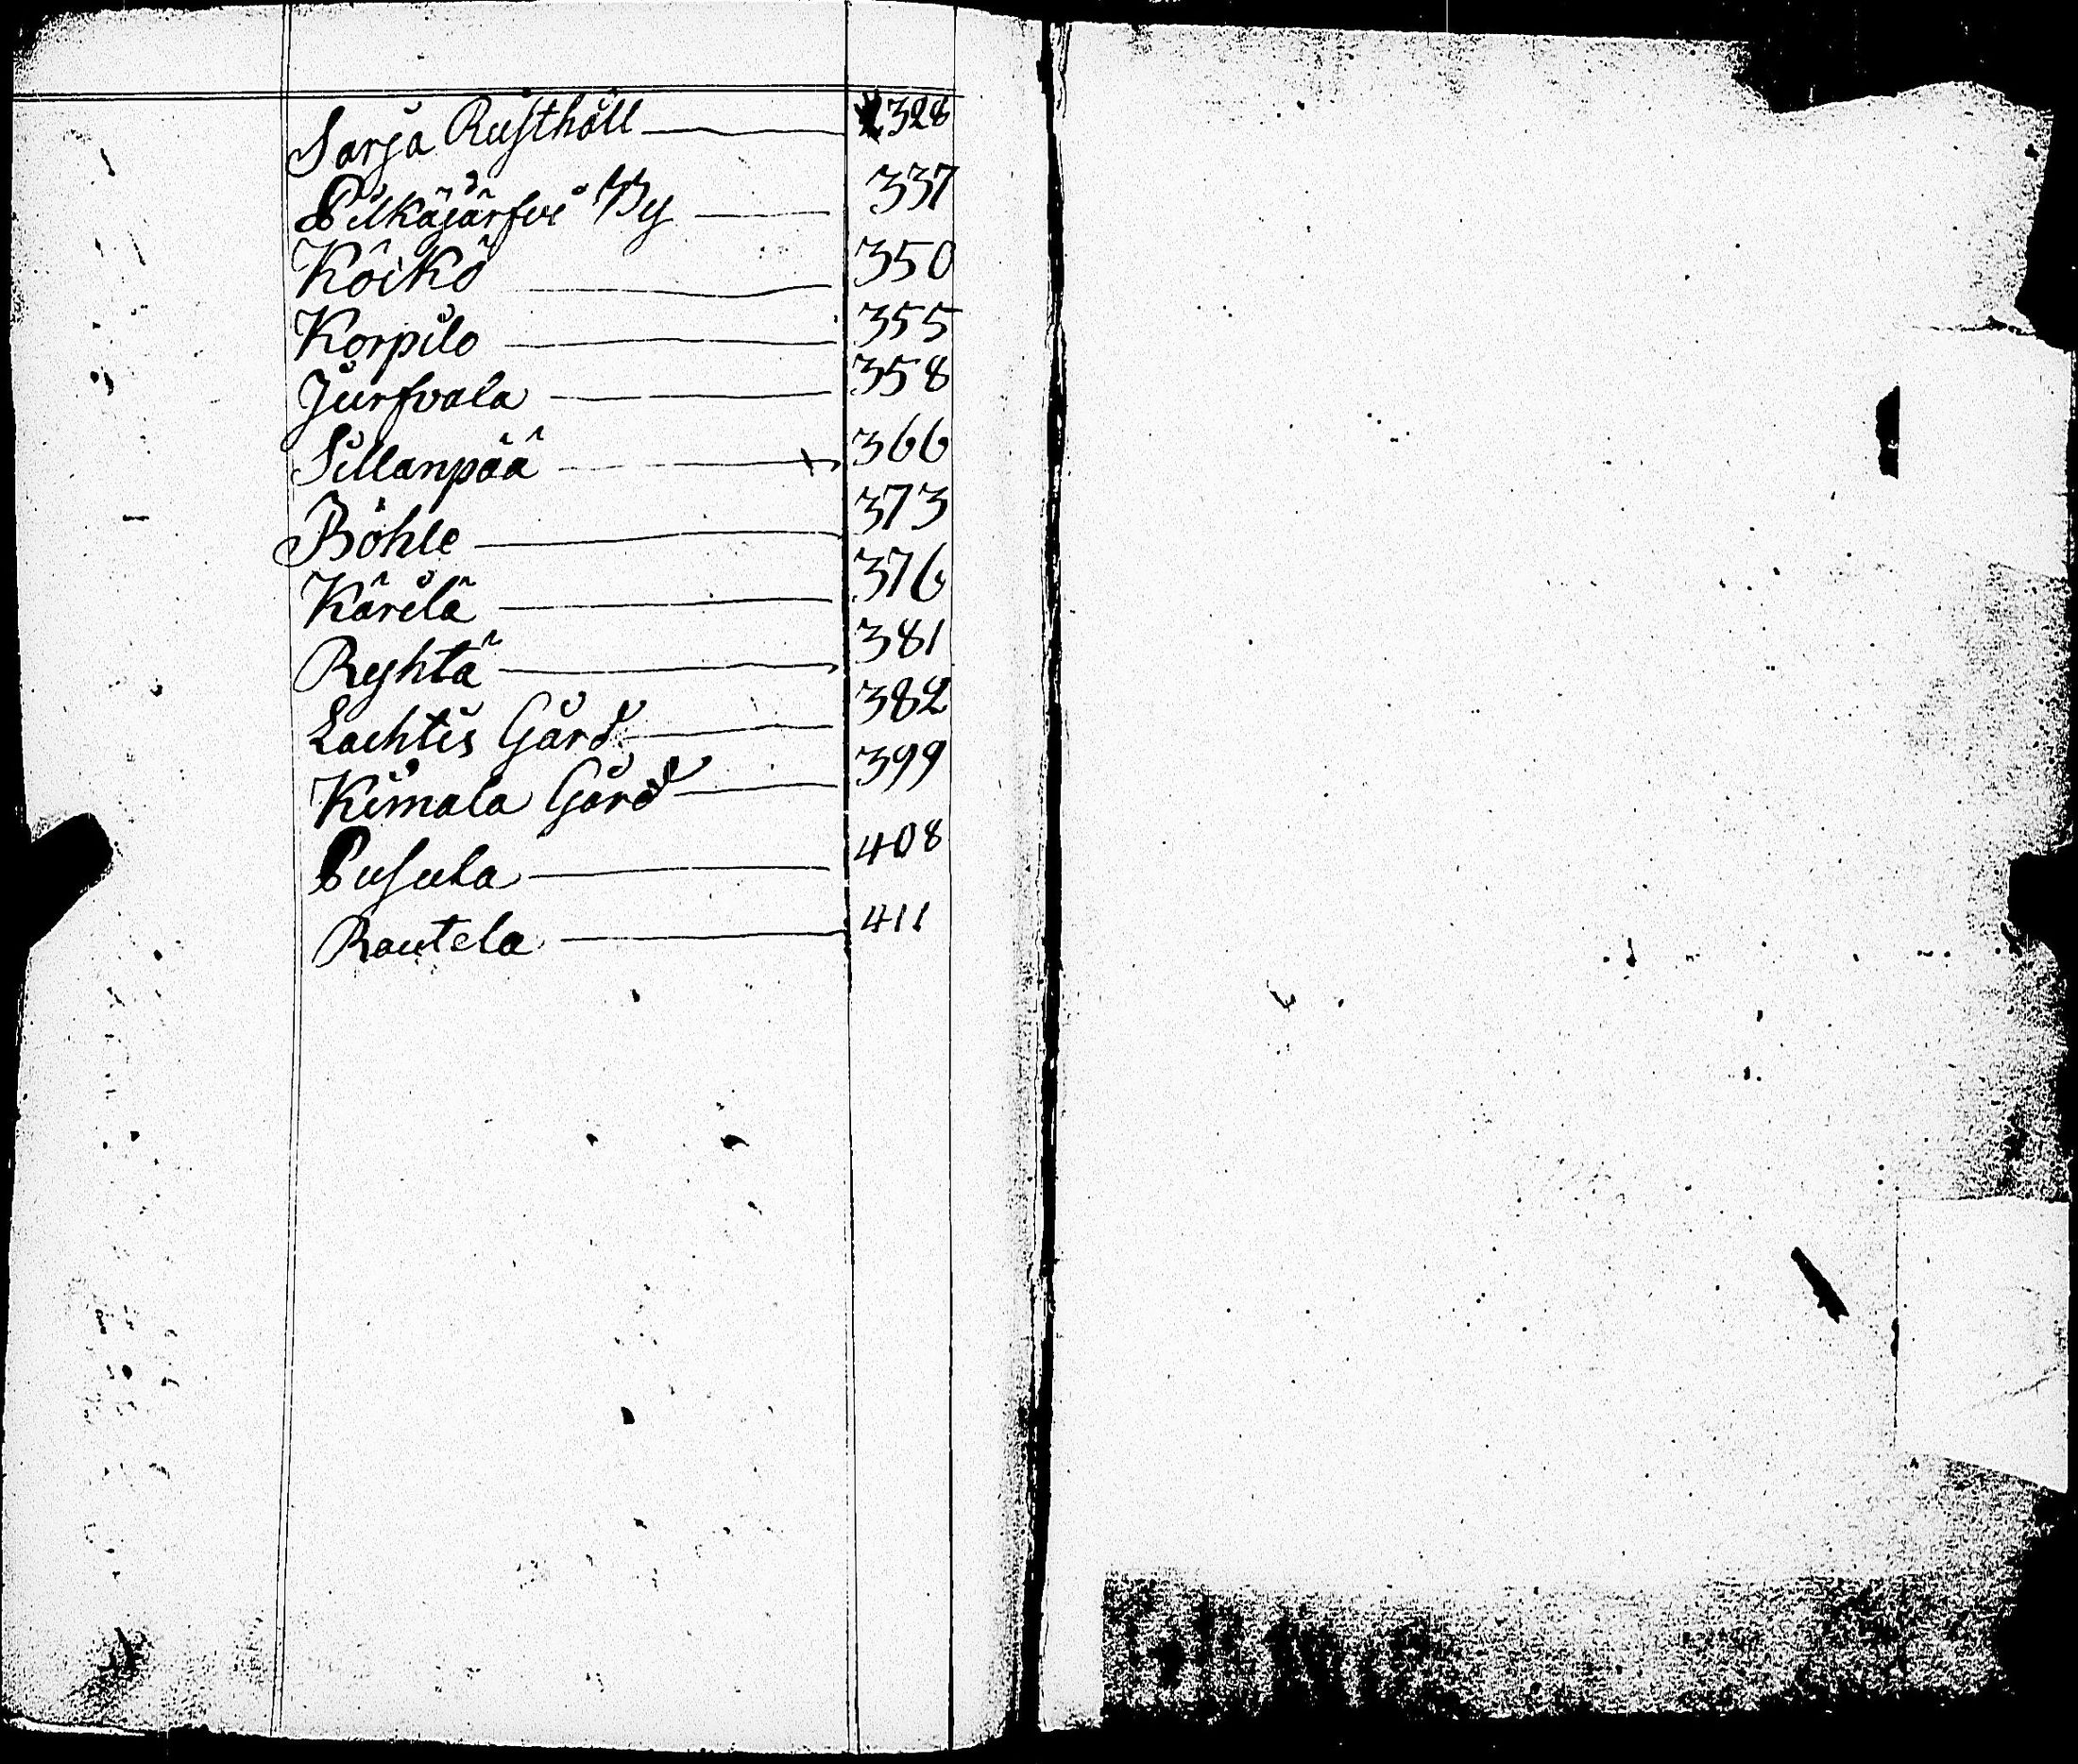 Sarja Rusthåll 328
Pitkäjärfvi By 337
Köikö 350
Korpilo 355
Jurfvala 358
Sillanpää 366
Böhle 373
Kärilä 376
Ryhtä 381
Lachtis Gård 382
Kimala Gård 399
Pusula 408
Rautela 411